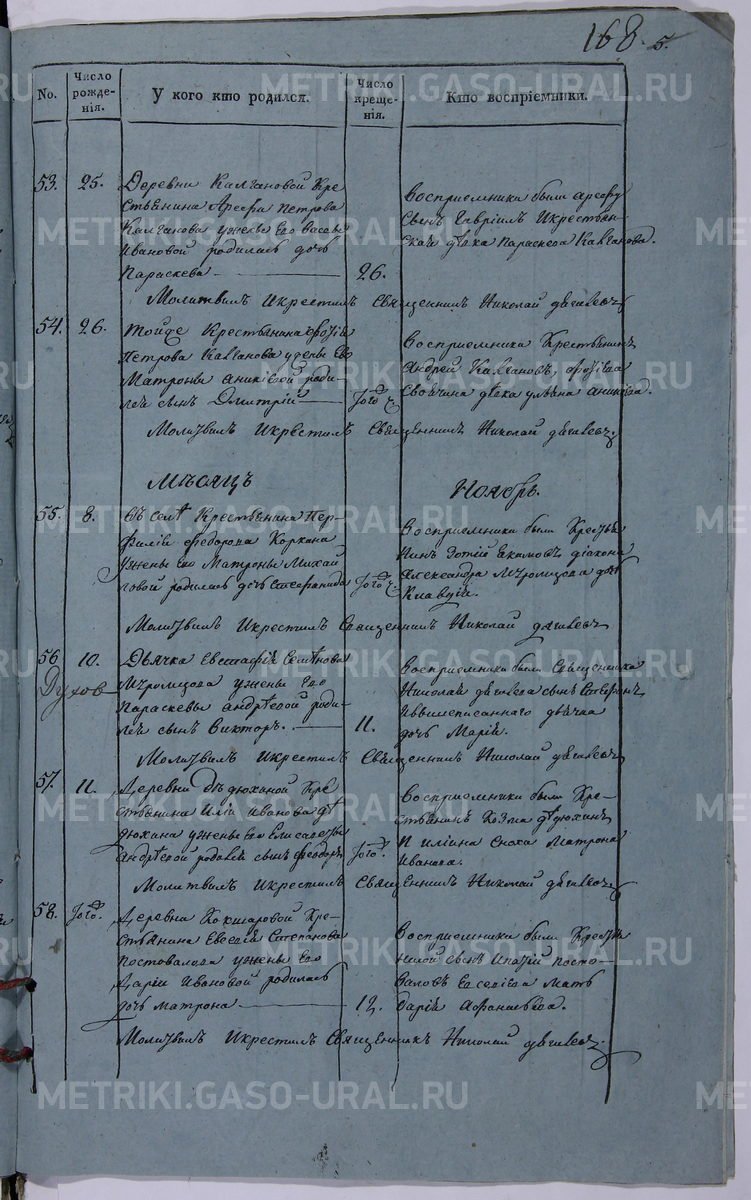 168. 5.
No. Число рожде-нія. У кого кто родился. Число креще-нія. Кто воспріемники.
53. 25. Деревни Калгановой Кре
стьянина Арефы Петрова
Калганова у жены его
Ивановой родилась дочь
Параскева 26.
Восприемники были Арефы
Сынъ Гавріилъ И крестьян-
ская дѣвка Параскева Калганова.
Молитвилъ И крестилъ Священникъ Николай
54. 26. Тойже Крестьянина
Петрова Калганова у жены его
Матроны Аникіевой роди-
лся сынъ Димитрій того ч.
Восприемники Крестьянинъ
Андрей Калгановъ,
дѣвка Ульяна Аникіева.
Молитвилъ И крестилъ Священникъ Николай
Мѣсяцъ Ноябрь.
55. 8. Въ селѣ Крестьянина Пер-
филія Федорова
У жены его Матроны Михай
ловой родилась дочь Стефанида того ч.
Восприемники были Крестья
нинъ Екимовъ, діакона
Александра дочь
Клавдія.
Молитвилъ И крестилъ Священникъ Николай
56 10. Дьячка Евстафія Семенова
Духов
у жены его
Параскевы Андрѣевой роди-
лся сынъ Викторъ. 11.
Восприемники были Священника
Николая сынъ Стефанъ
И вышеписаннаго дьячка
дочь Марія.
Молитвилъ И крестилъ Священникъ Николай
57. 11. Деревни Дѣдюхиной Кре
стьянина Иліи Иванова Дѣ
дюхина у жены его Елисаветы
Андрѣевой родился сынъ Феодоръ того.
Восприемники были Кре-
стьянинъ Козма Дѣдюхинъ
И Иліина Сноха Матрона
Иванова.
Молитвилъ И крестилъ Священникъ Николай
58. того. Деревни Кокшаровой Кре-
стьянина Евсевія Степанова
Постовалова у жены его
Даріи Ивановой родилась
дочь Матрона 12.
Восприемники были Крестья
сынъ Ипатій Посто-
валовъ Евсевіева Мать
Дарія Афанасьева.
Молитвилъ И крестилъ Священникъ Николай
METRIKI.GASO-URAL.RU